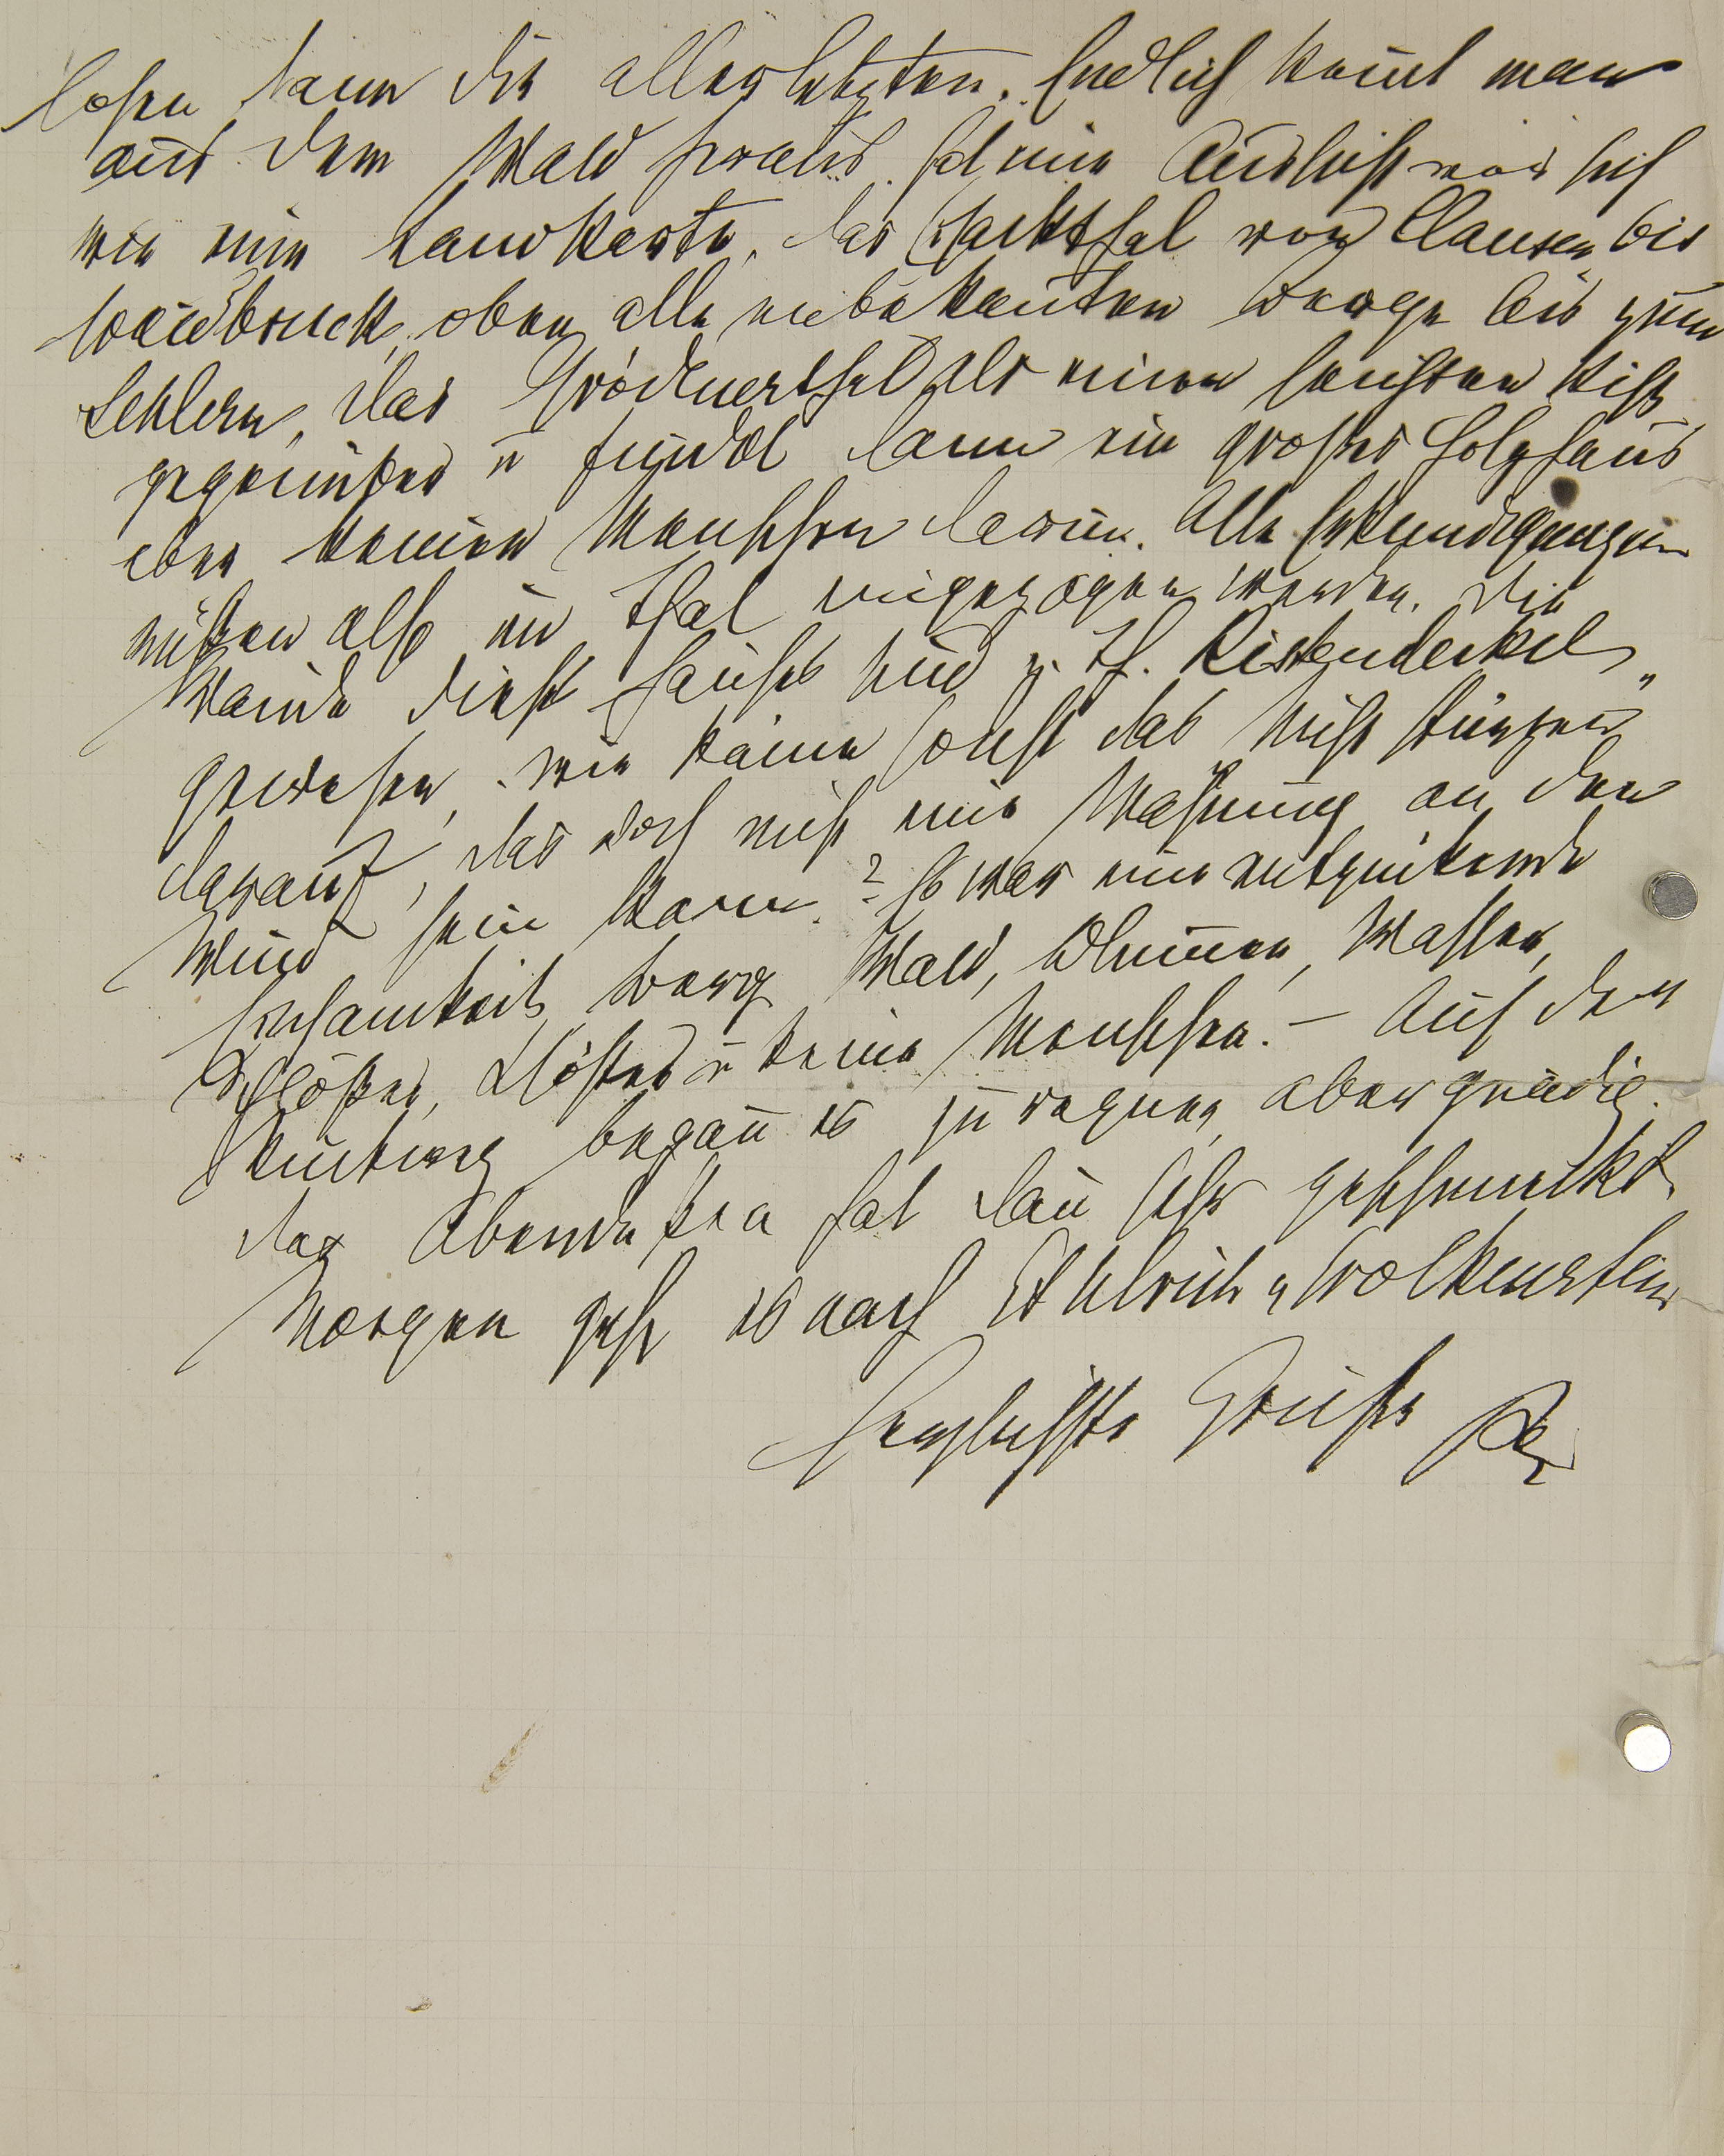 dann die allerletzten. Endlich kom̅t man
aus dem Wald heraus, hat eine Aussicht vor sich
wie eine Landkarte, das Eisackthal von Clausen bis
Waidbruck, oben alle unbekan̅ten Berge bis zum
Schlern, das Grödnerthal als einen leichten Riß
gegenüber u findet dann ein großes Holzhaus
aber keinen Menschen darin. Alle Erkundigungen
müßen also im Thal eingezogen werden. Die
Wände dieses Hauses sind z. Th. Kistendeckel
gewesen, wie käme sonst das Nicht stürzen
darauf, das doch nicht eine Mahnung an den
Wind sein kann? Es war eine entzückende
Einsamkeit, Berg Wald, Blumen, Wasser,
Schlößer, Klöster u keine Menschen. – Auf dem
Rückweg began̅ es zu regnen, aber gnädig.
Das Abendessen hat dan̅ sehr geschmeckt.
Morgen geht es nach St Ulrich u Wolkenstein
Herzlichste Grüße